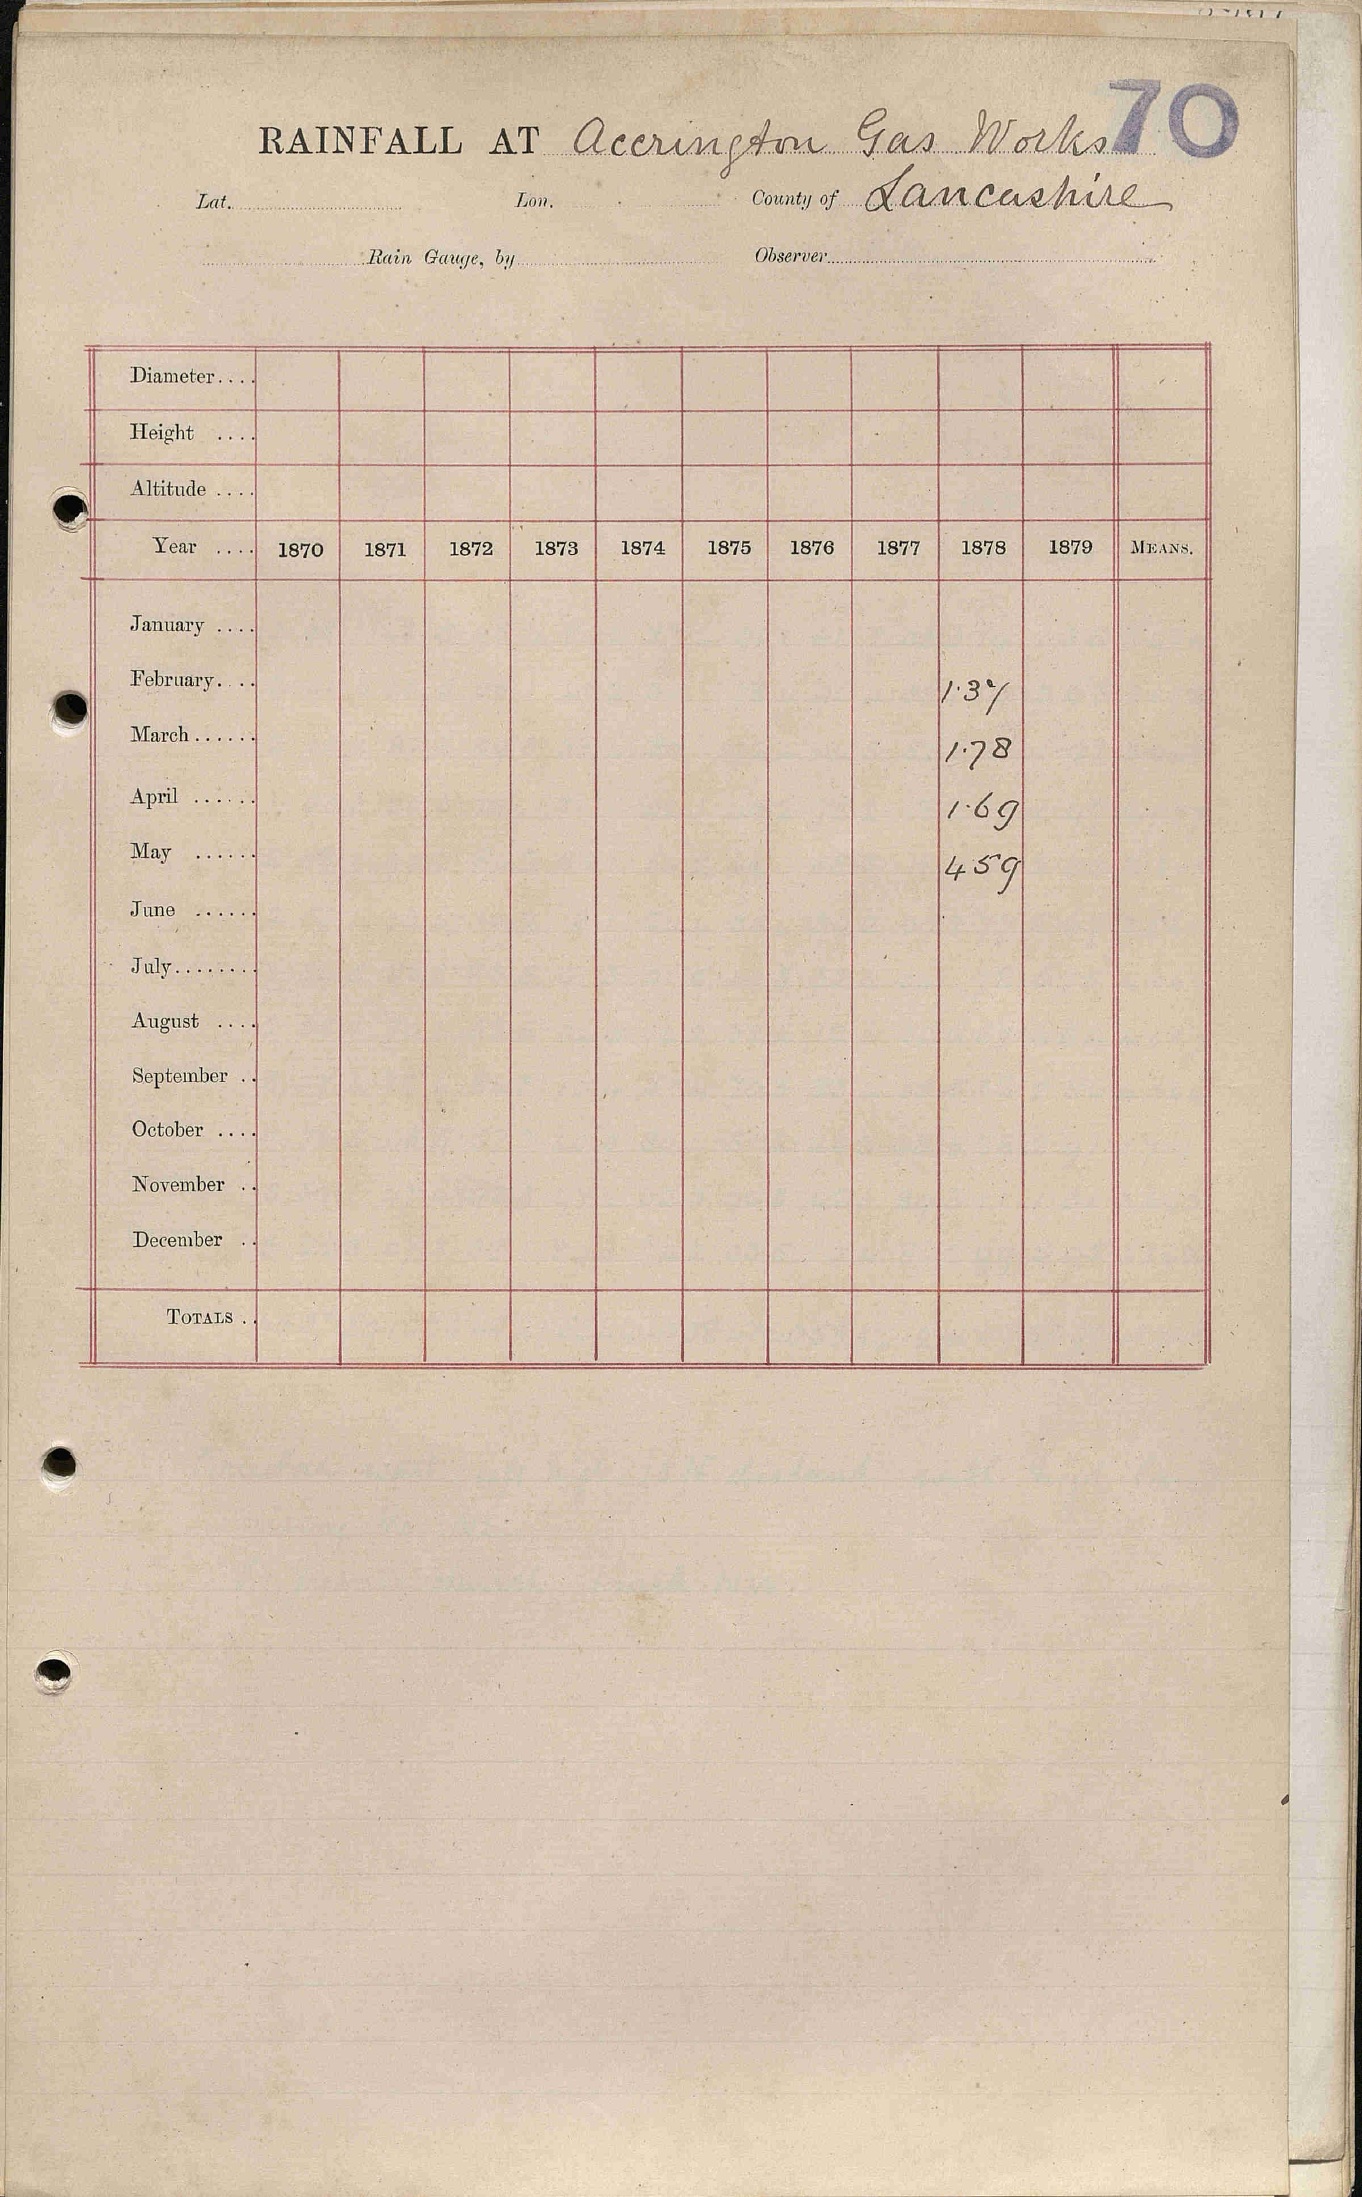 70
RAINFALL AT Accrington Gas Works
Lat. Lon. County of Lancashire
Rain Gauge, by Observer
Diameter....
Height ....
Altitude ....
Year .... 1870 1871 1872 1873 1874 1875 1876 1877 1878 1879 MEANS.
January ....
February.... 1.37
March...... 1.78
April ...... 1.69
May ...... 4 59
June ......
July........
August ....
September ..
October ....
November ..
December ..
TOTALS ..